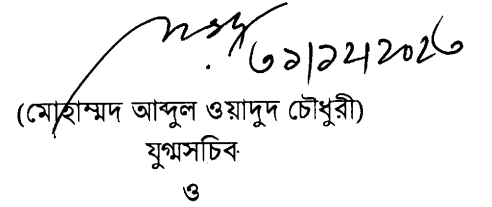 ৩১/১২/২০২৩
(মোহাম্মদ আব্দুল ওয়াদুদ চৌধুরী)
যুগ্মসচিব
ও